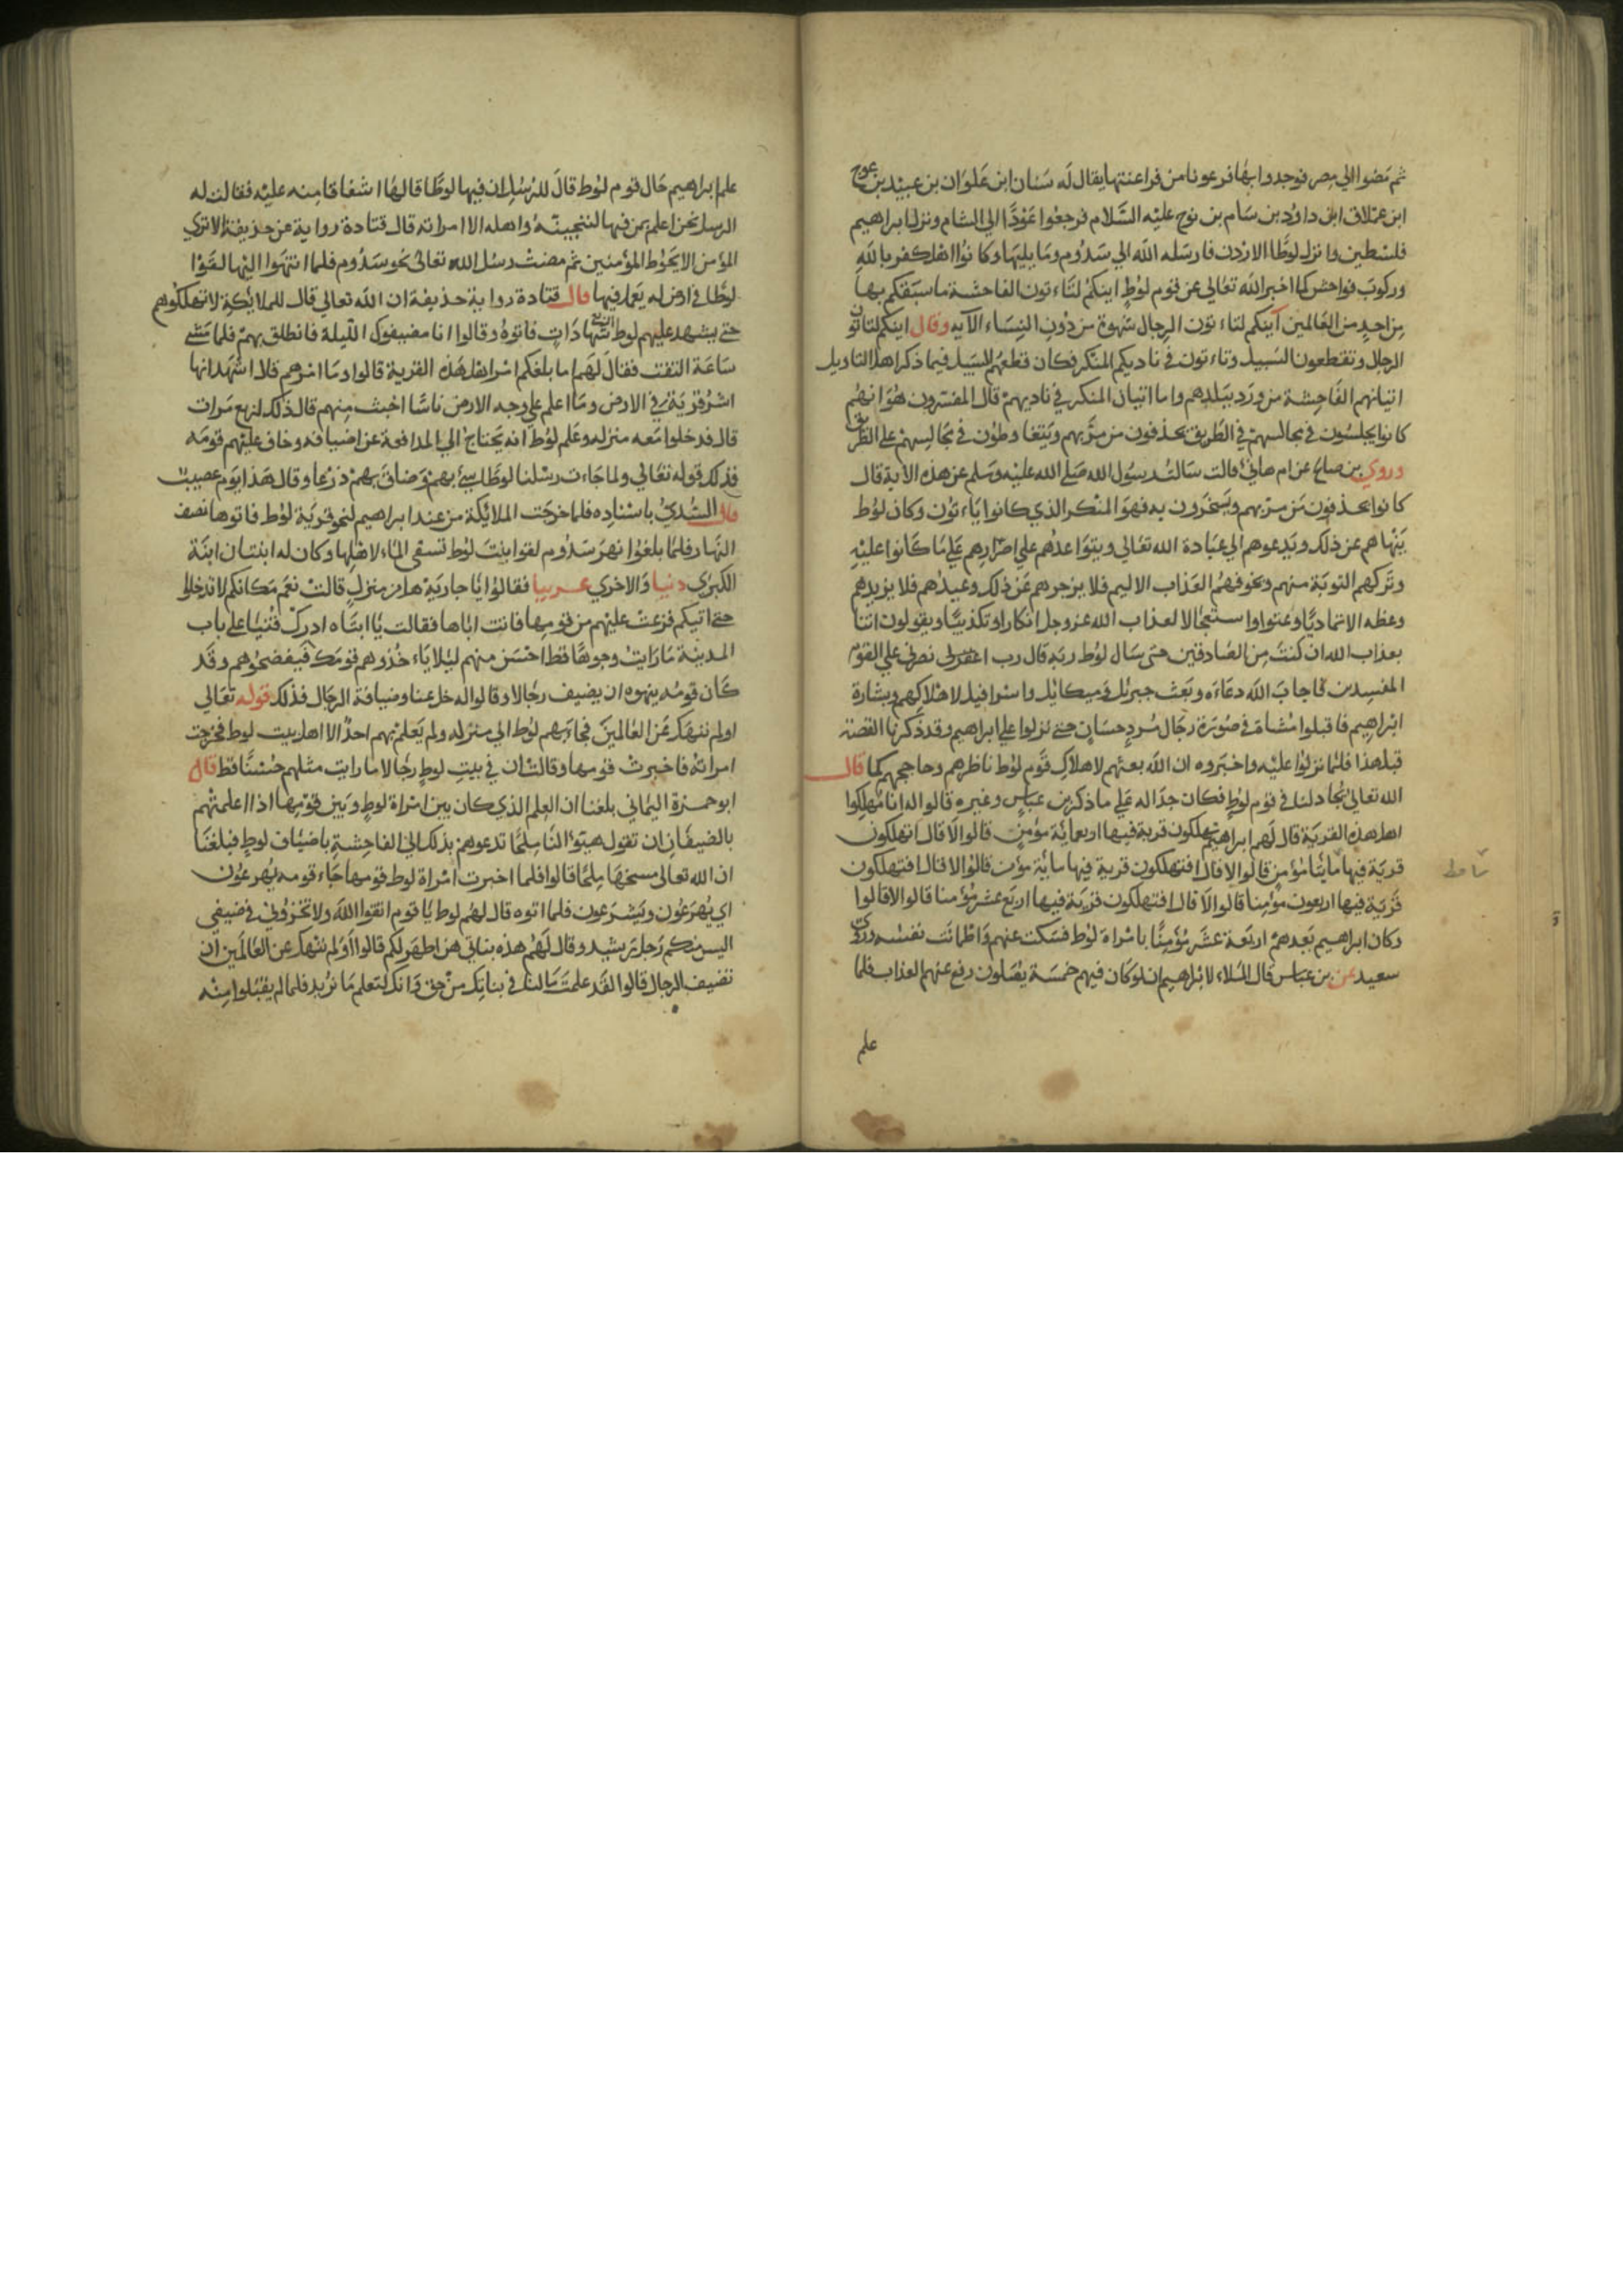 ثم مضوا الي مصر فوجدوا بها فرعونا من فراعنتها يقال له سنان ابن علوان بن عبيد بن عوج
ابن عملاق ابن داود بن سام بن نوح عليه السلام فرجعوا عودا الي الشام ونزل ابراهيم
فلسطين وانزل لوطا الاردن فارسله الله الي سدوم وما يليها وكانوا اهل كفر بالله
وركوب فواحش كما اخبر الله تعالي عن قوم لوط اينكم لتاءتون الفاحشة ما سبقكم بها
من احد من العالمين آينكم لتاءتون الرجال شهوة من دون النساء الآيه وقال اينكم لتاتون
الرجال وتقطعون السبيل وتاءتون في ناديكم المنكر فكان قطعهم السبيل فيما ذكر اهل التاويل
اتيانهم الفاحشة من ورد ببلدهم واما اتيان المنكر في ناديهم قال المفسرون هو انهم
كانوا يجلسون في مجالسهم في الطريق يحذفون من مر بهم ويتغاوطون في مجالسهم علي الطريق
وروي بن صالح عن ام هاني قالت سالت رسول الله صلي الله عليه وسلم عن هذه الاية قال
كانوا يحذفون من مر بهم ويسخرون به فهو المنكر الذي كانوا ياءتون وكان لوط
ينهاهم عن ذلك ويدعوهم الي عبادة الله تعالي ويتواعدهم علي اصرارهم علي ما كانوا عليه
وتركهم التوبة منهم ويخوفهم العذاب الاليم فلا يزجرهم عن ذلك وعيدهم فلا يزيدهم
وعظه الا تماديا وعتوا واستعجالا لعذاب الله عز وجل انكارا وتكذيبا ويقولون اتنا
بعذاب الله ان كنت من الصادقين حتى سال لوط ربه قال رب انصرني علي القوم
المفسدين فاجاب الله دعاءه وبعث جبريل وميكائيل واسرافيل لاهلاكهم وبشارة
ابراهيم فاقبلوا مشاة في صورة رجال مرد حسان حتي نزلوا علي ابراهيم وقد ذكرنا القصة
قبل هذا فلما نزلوا عليه واخبروه ان الله بعثهم لاهلاك قوم لوط ناظرهم وحاججهم كما قال
الله تعالي يجادلنا في قوم لوط فكان جداله علي ما ذكر بن عباس وغيره قالوا له انا مهلكوا
اهل هذه القرية قال لهم ابراهيم تهلكون قرية فيها اربعمائة مؤمن قالوا لا قال اتهلكون
قرية فيها مايتا مؤمن قالوا لا قال افتهلكون قرية فيها ماية مؤمن قالوا لا قال افتهلكون
قرية فيها اربعون مؤمنا قالوا لا قال افتهلكون قرية فيها اربع عشر مؤمنا قالوا لا قالوا
وكان ابراهيم يعدهم اربعة عشر مؤمنا بامراة لوط فسكت عنهم واطمانت نفسه وروي
سعيد عن بن عباس قال الملاء لابراهيم ان لو كان فيهم خمسة يصلون رفع عنهم العذاب فلما
علم
علم ابراهيم حال قوم لوط قال للرسل ان فيها لوطا قالها اشفاقا منه عليه فقالت له
الرسل نحن اعلم بمن فيها لننجينه واهله الا امراته قال قتادة رواية عن حذيفة لا تري
المؤمن الا يحوط المؤمنين ثم مضت رسل الله تعالى نحو سدوم فلما انتهوا اليها لقوا
لوطا في ارض له يعمل فيها قال قتادة رواية حذيفة ان الله تعالي قال للملائكة لا تهلكوهم
حتي يشهد عليهم لوط اربع شهادات فاتوه وقالوا انا مضيفوك الليلة فانطلق بهم فلما مشي
ساعة التفت فقال لهم اما بلغكم امر اهل هذه القرية قالوا وما امرهم قال اشهد انها
اشر قرية في الارض وما اعلم علي وجه الارض ناسا اخبث منهم قال ذلك اربع مرات
قال فدخلوا معه منزله وعلم لوط انه يحتاج الي المدافعة عن اضيافه وخاف عليهم قومه
فذلك قوله تعالي ولما جاءت رسلنا لوطا سيء بهم وضاق بهم ذرعا وقال هذا يوم عصيب
قال السدي باسناده فلما خرجت الملائكة من عند ابراهيم نحو قرية لوط فاتوها نصف
النهار فلما بلغوا نهر سدوم لقوا بنت لوط تسقى الماء لاهلها وكان له ابنتان ابنة
الكبرى دنيا والاخري عربيا فقالوا يا جارية هل من منزل قالت نعم مكانكم لا تدخلوا
حتي اتيكم فزعت عليهم من قومها فاتت اباها فقالت يا ابتاه ادرك فتيا علي باب
المدينة ما رايت وجوها قط احسن منهم ليلا ياءخذوهم قومك فيفضحوهم وقد
كان قومه ينهوه ان يضيف رجالا وقالوا له خل عنا وضيافة الرجال فذلك قوله تعالي
اولم ننهك عن العالمين فجاءبهم لوط الي منزله ولم يعلم بهم احد الا اهل بيت لوط فخرجت
امراته فاخبرت قومها وقالت ان في بيت لوط رجالا ما رايت مثلهم حسنا قط قال
ابو حمزة اليماني بلغنا ان العلم الذي كان بين امراة لوط وبين قومها اذا اعلمتهم
بالضيفان ان تقول هيئوا لنا ملحا تدعوهم بذلك الي الفاحشة باضياف لوط فبلغنا
ان الله تعالى مسخها ملحا قالوا فلما اخبرت امراة لوط قومها جاء قومه يهرعون
اي يهرعون ويسرعون فلما اتوه قال لهم لوط يا قوم اتقوا الله ولا تخزوني في ضيفي
اليس منكم رجل رشيد وقال لهم هذه بناتي هن اطهر لكم قالوا اولم ننهك عن العالمين ان
تضيف الرجال قالوا لقد علمت ما لنا في بناتك من حق وانك لتعلم ما نريد فلما لم يقبلوا منه